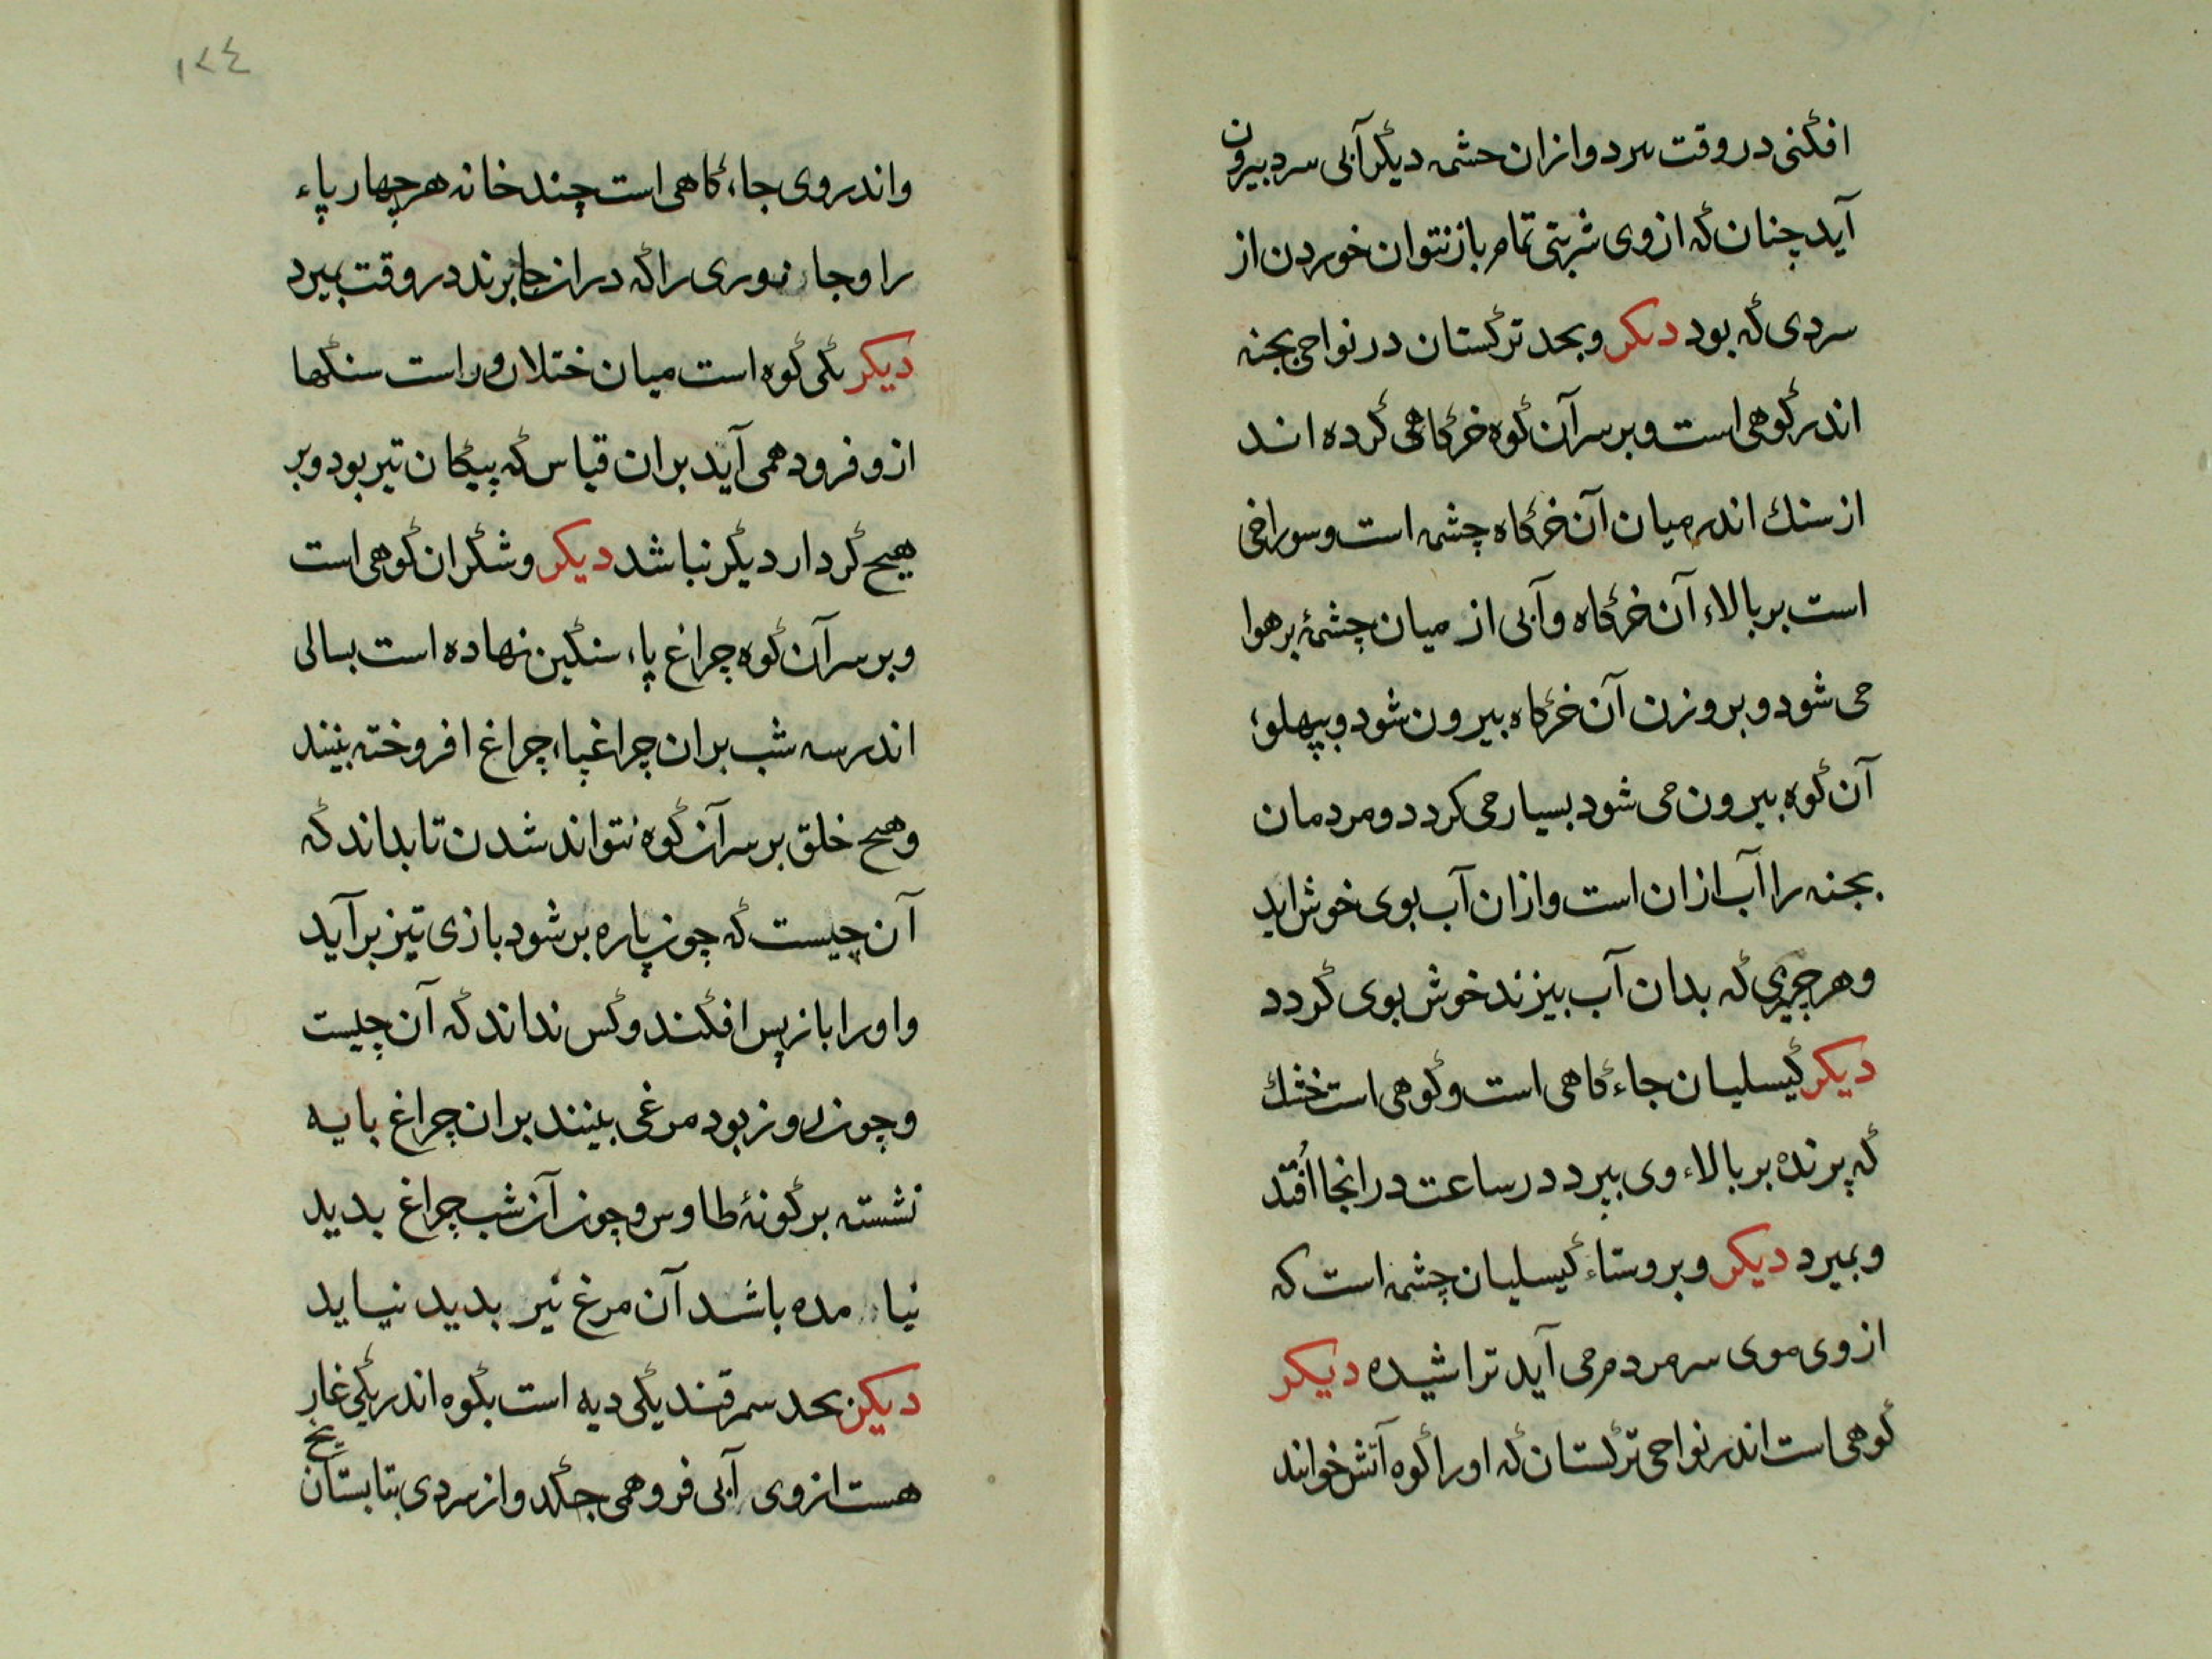 افگنی در وقت سرد و ازان حشمه دیگر آبی سرد بیرون
آید چنان که از وی شربتی تمام باز نتوان خوردن از
سردی که بود دیکر و بحد ترکستان در نواحی بجنه
اندر کوهی است و بر سر آن کوه خرگاهی کرده اند
از سنك اندر میان آن خرگاه چشمه است و سوراخی
است بر بالاء آن خرگاه و آبی از میان چشمهٔ بر هوا
می شود و بروزن آن خرگاه بیرون شود و بپهلوء
آن کوه بیرون می شود بسیار می کردد و مردمان
بجنه را آب ازان است و ازان آب بوی خوش اید
و هر چیزی که بدان آب بپزند خوش بوی گردد
دیکر کیسلیان جاءگاهی است و کوهی است خشك
که پرنده بر بالاء وی بپرد در ساعت در انجا اُفتد
و بمیرد دیکر و بروستاء کیسلیان چشمه است که
از وی موی سر مردم می آید تراشیده دیکر
کوهی است اندر نواحی ترکستان که او را کوه آتش خوانند
۱۷٤
و اندر وی جاءگاهی است چند خانه هر چهار پاء
را و جانوری را که در انجا برند در وقت بمیرد
دیکر یکی کوه است میان ختلان و راست سنگها
از و فرود همی آید بران قیاس که پیکان تیر بود و بر
هیچ کردار دیگر نباشد دیکر وشگران کوهی است
و بر سر آن کوه چراغ پاء سنگین نهاده است بسالی
اندر سه شب بران چراغپاء چراغ افروخته بینند
و هیچ خلق بر سر آن کوه نتواند شدن تا بداند که
آن چیست که چون پاره بر شود بازی تیز برآید
و او را باز پس افکند و کس نداند که آن چیست
و چون روز بود مرغی بینند بران چراغ بایه
نشسته بر گونهٔ طاوس و چون آن شب چراغ بدید
نیامده باشد آن مرغ نیز بدید نیاید
دیکر بحد سمرقند یکی دیه است بکوه اندر یکی غار
هست از وی آبی فرو همی چکد و از سردی بتابستان یخ